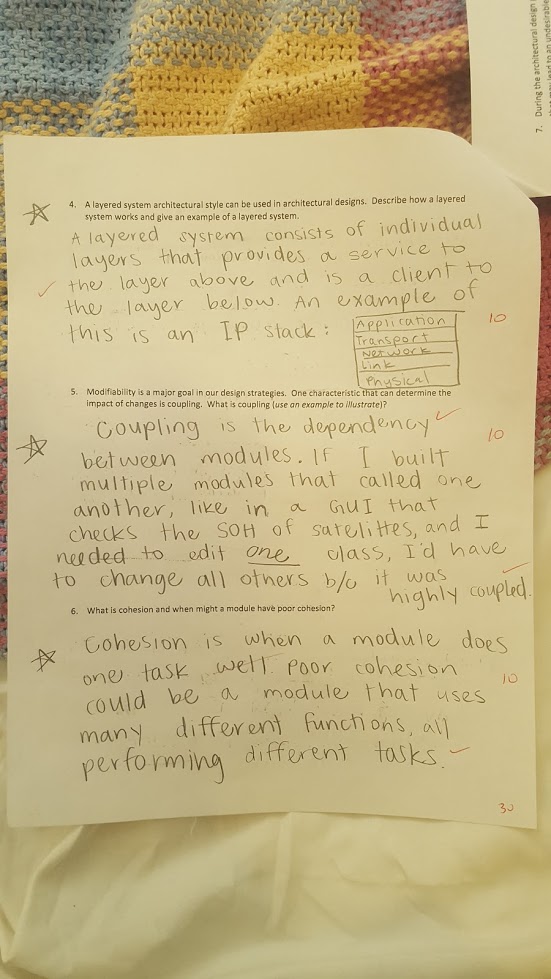 7. During the architectural design
4. A layered system architectural style can be used in architectural designs. Describe how a layered
system works and give an example of a layered system.
A layered system consists of individual
layers that provides a service to
the layer above and is a client to
the layer below. An example of
this is an IP stack:
Application
Transport
Network
Link
Physical
10
5. Modifiability is a major goal in our design strategies. One characteristic that can determine the
impact of changes is coupling. What is coupling (use an example to illustrate)?
Coupling is the dependency
10
between modules. If I built
multiple modules that called one
another, like in a GUI that
checks the SOH of satelittes, and I
needed to edit one class, I'd have
to change all others b/c it was
highly coupled.
6. What is cohesion and when might a module have poor cohesion?
Cohesion is when a module does
one task well. Poor cohesion
10
could be a module that uses
many different functions, all
performing different tasks.
30